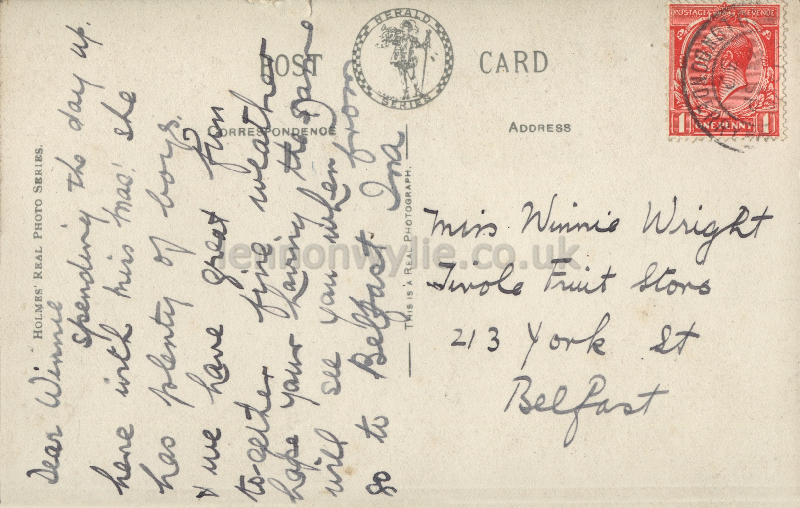 POST CARD
HERALD SERIES
CORRESPONDENCE
ADDRESS
POSTAGE REVENUE
ONE PENNY
1 1
HOLMES' REAL PHOTO SERIES.
THIS IS A REAL PHOTOGRAPH.
Dear Winnie
spending the day up
here with Miss Mas! she
has plenty of boys.
& we have great fun
together fine weather
hope your having the same
will see you when I
go to Belfast. from
Ina
Miss Winnie Wright
Tivole Fruit Store
213 York St
Belfast
lennonwylie.co.uk